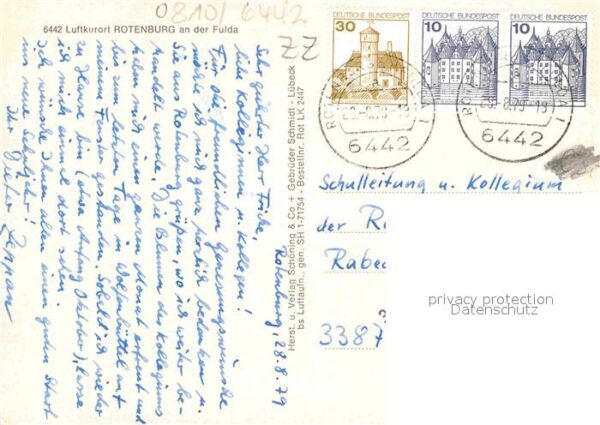 0810/6442
6442 Luftkurort ROTENBURG an der Fulda
ZZ
DEUTSCHE BUNDESPOST
30
DEUTSCHE BUNDESPOST
10
DEUTSCHE BUNDESPOST
10
6442
6442
Rotenburg, 28.8.79
Sehr geehrter Herr Fricke,
liebe Kolleginnen u. Kollegen!
Für die freundlichen Genesungswünsche
möchte ich mich ganz herzlich bedanken u.
Sie aus Rotenburg grüßen, wo ich weiter be-
handelt werde. Die Blumen des Kollegiums
haben mich einen ganzen Monat erfreut und
die letzten Tage in Wolfenbüttel auf
meinem gestanden. Sobald ich wieder
zu Hause bin (etwa Anfang Oktober), lasse
ich mich einmal dort sehen.
Ich wünsche Ihnen allen einen guten Start
ins neue Schuljahr!
Ihr Dieter
Herst. u. Verlag Schöning & Co + Gebrüder Schmidt - Lübeck
bs Luftaufn., gen. SH 1-71754 - Bestellnr. Rot LK 2447
Schulleitung u. Kollegium
der R
Rabe
3387
privacy protection
Datenschutz